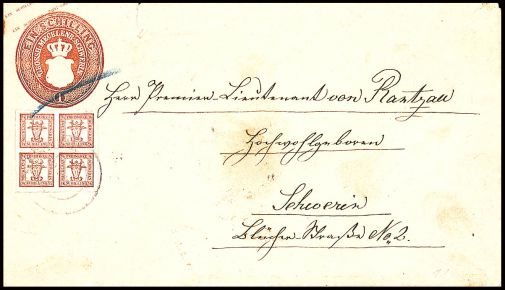 EIN SCHILLING
GROSSH. MECKLENB. SCHWERIN
1
Herrn Premier Lieutenant von Rantzau
Hochwohlgeboren
Schwerin
Blücher Straße No 2.